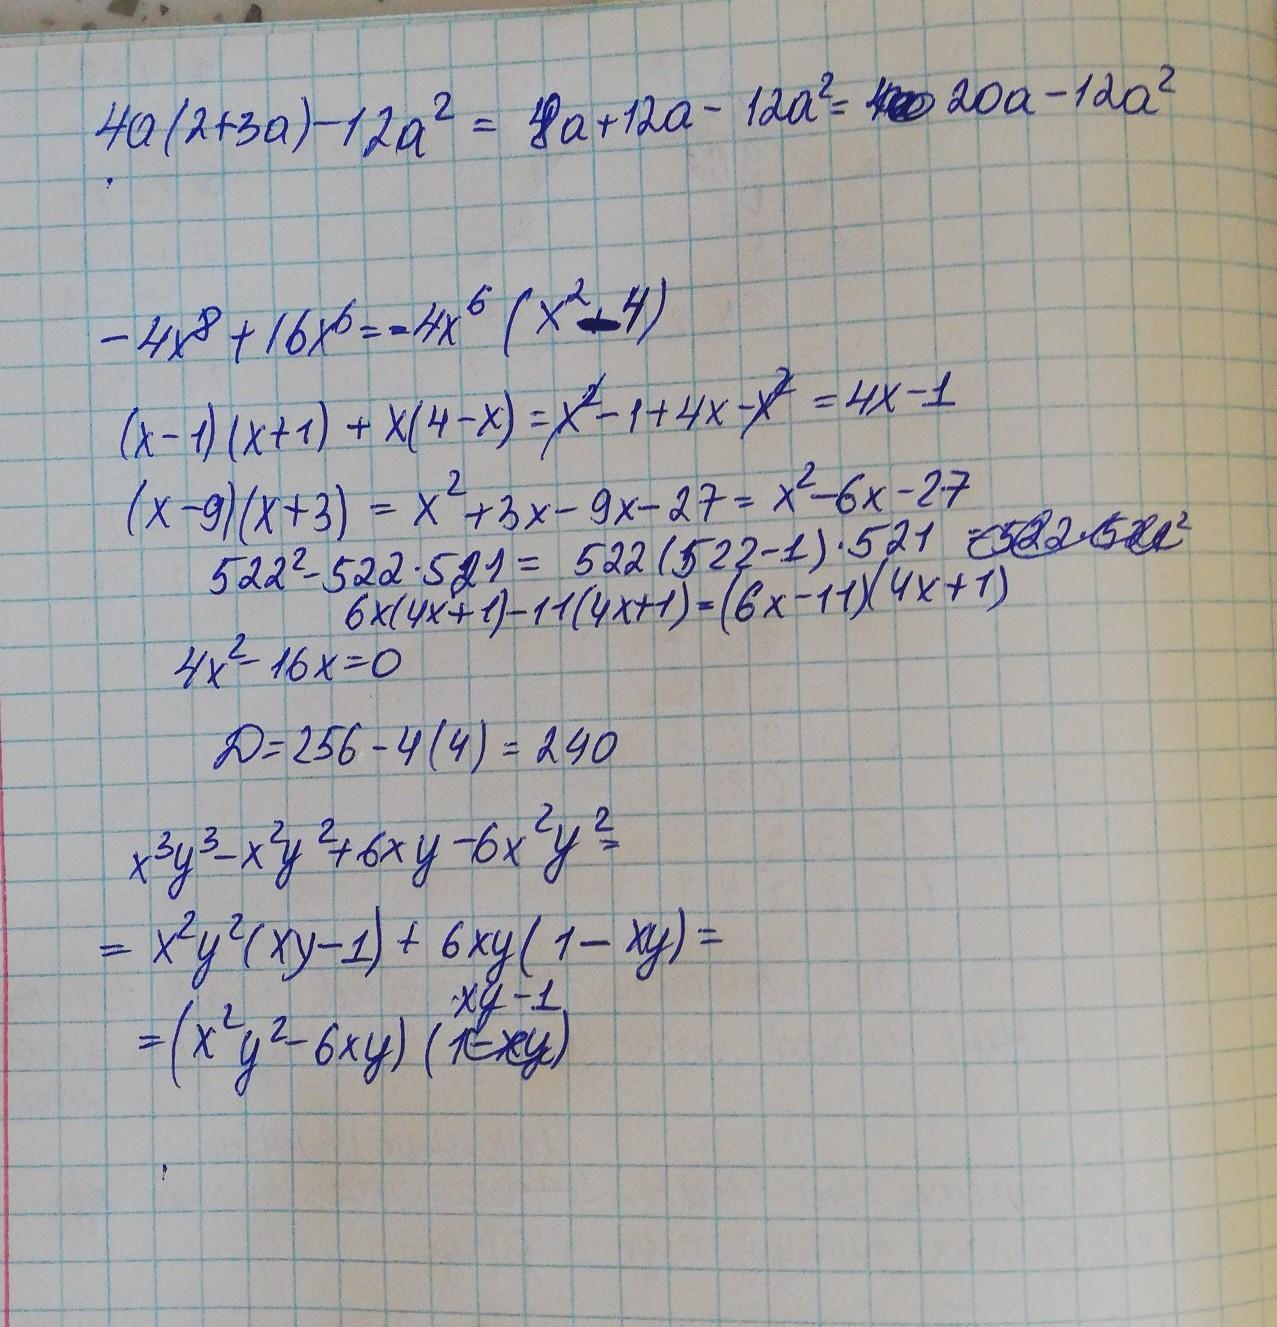 4a(2+3a)-12a² = 8a+12a-12a²= 20a-12a²
-4x⁸+16x⁶=-4x⁶(x²-4)
(x-1)(x+1)+x(4-x)=x²-1+4x-x²=4x-1
(x-9)(x+3)=x²+3x-9x-27=x²-6x-27
522²-522·521= 522(522-1)·521
6x(4x+1)-11(4x+1)=(6x-11)(4x+1)
4x²-16x=0
D=256-4(4)=240
x³y³-x²y²+6xy-6x²y²=
= x²y²(xy-1)+6xy(1-xy)=
xy-1
=(x²y²-6xy)(1-xy)